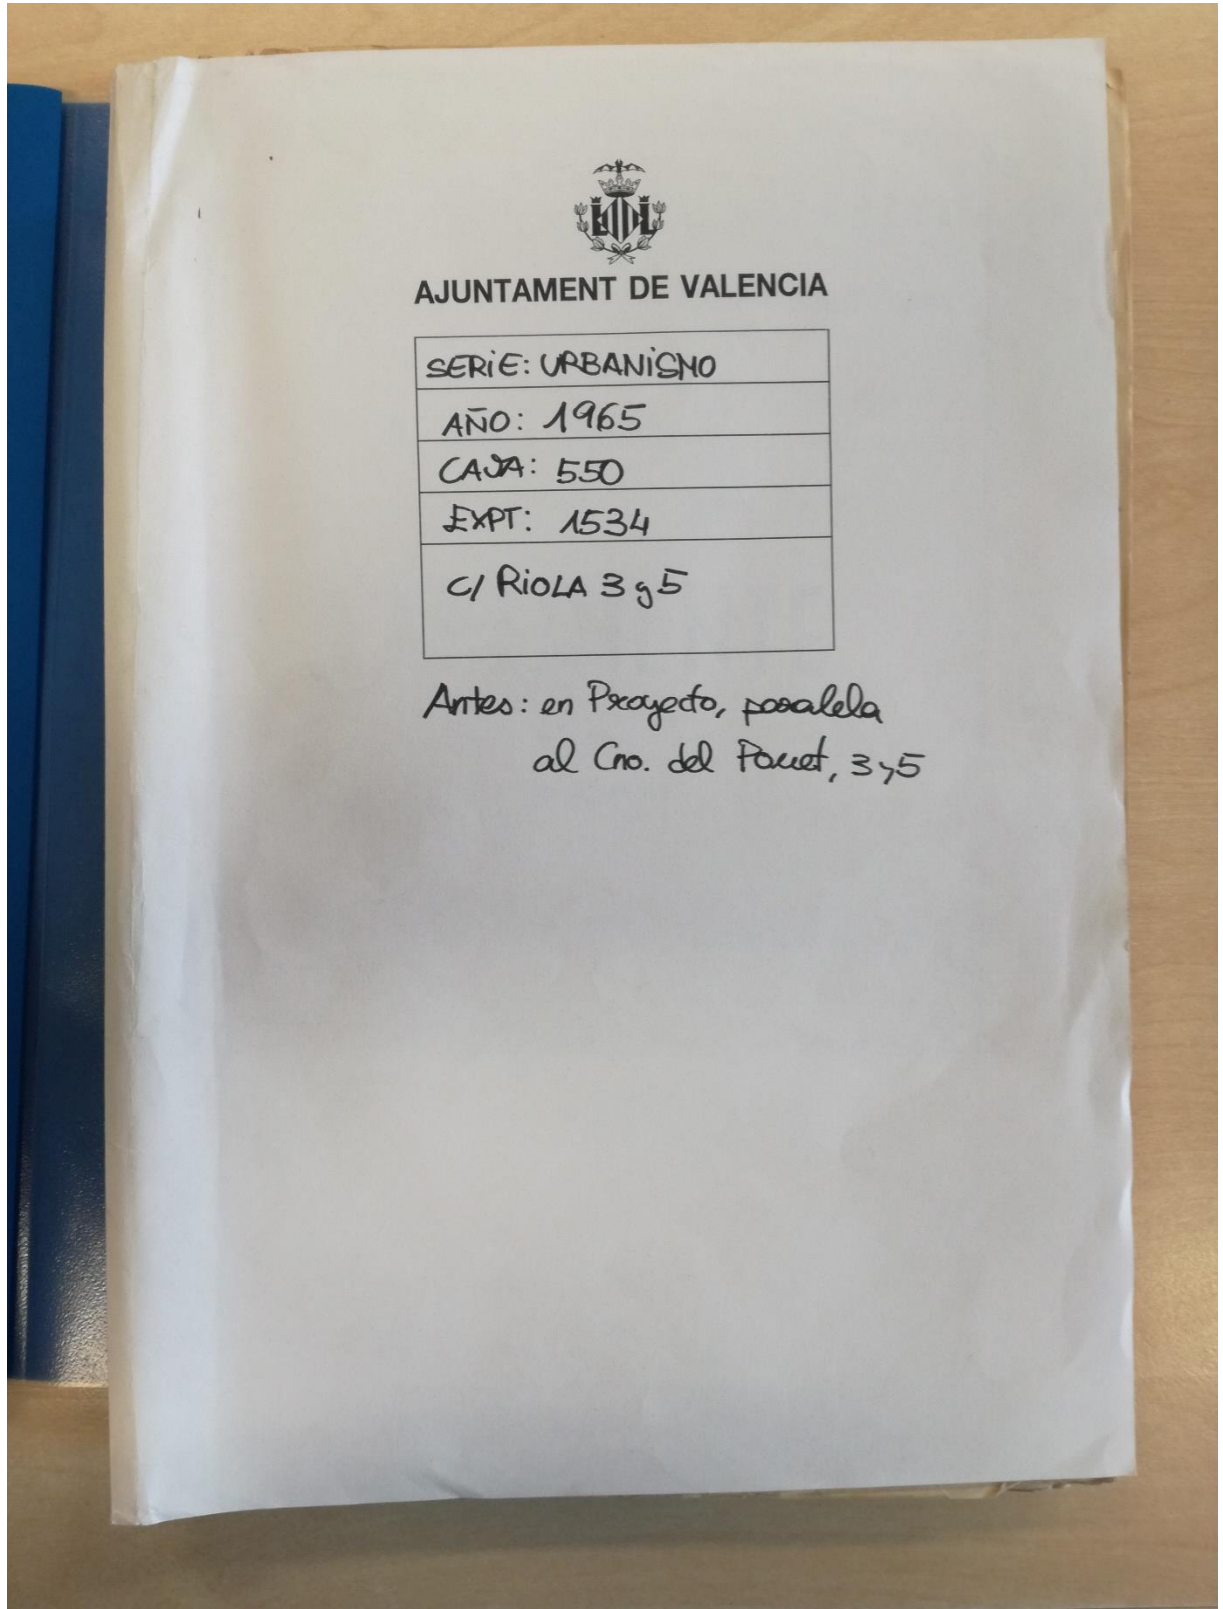 AJUNTAMENT DE VALENCIA
SERIE: URBANISMO
AÑO: 1965
CAJA: 550
EXPT: 1534
C/ RIOLA 3 y 5
Antes: en Proyecto, paralela
al Cno. del Pouet, 3 y 5